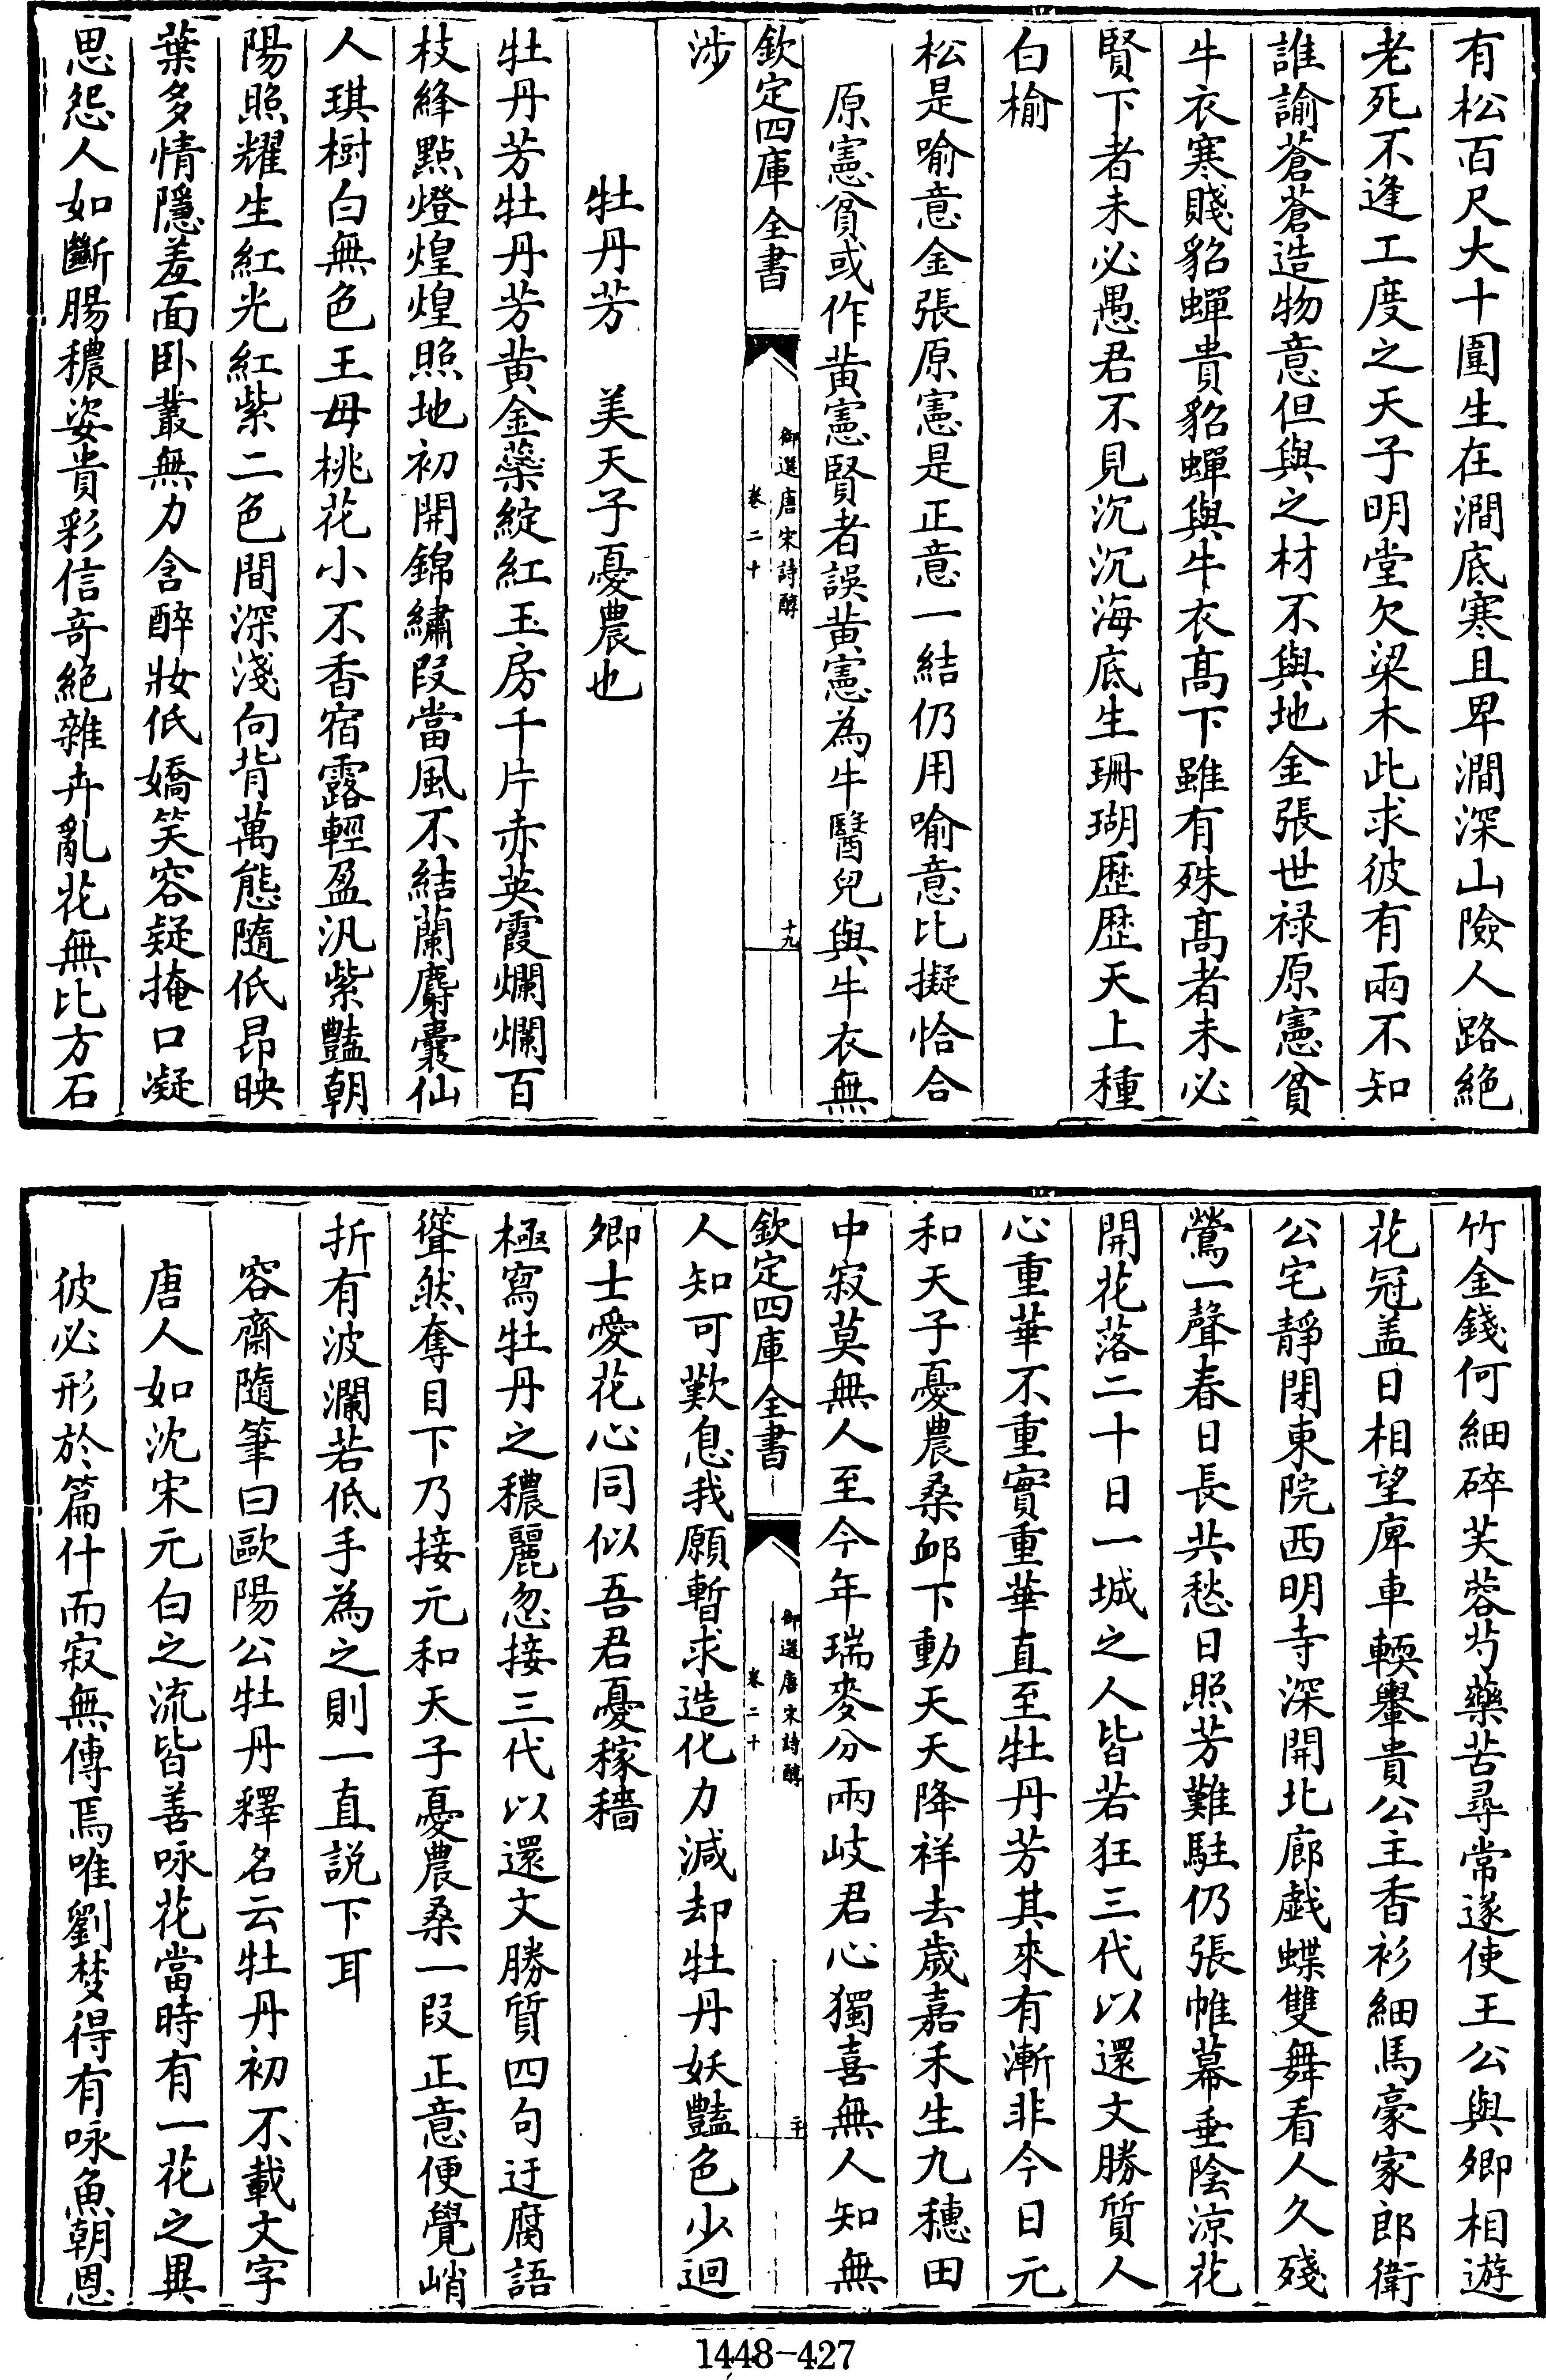 有松百尺大十圍生在澗底寒且卑澗深山險人路絶
老死不逢工度之天子明堂欠梁木此求彼有兩不知
誰諭蒼蒼造物意但與之材不與地金張世禄原憲貧
牛衣寒賤貂蟬貴貂蟬與牛衣髙下雖有殊髙者未必
賢下者未必愚君不見沉沉海底生珊瑚歴歴天上種
白榆
松是喻意金張原憲是正意一結仍用喻意比擬恰合
原憲貧或作黄憲賢者誤黄憲為牛醫兒與牛衣無
欽定四庫全書
御選唐宋詩醇
卷二十
十九
涉
牡丹芳　美天子憂農也
牡丹芳牡丹芳黄金蘂綻紅玉房千片赤英霞爛爛百
枝絳點燈煌煌照地初開錦繡段當風不結蘭麝囊仙
人琪樹白無色王母桃花小不香宿露輕盈汎紫豔朝
陽照耀生紅光紅紫二色間深淺向背萬態隨低昂映
葉多情隱羞面卧叢無力含醉妝低嬌笑容疑掩口凝
思怨人如斷腸穠姿貴彩信竒絶雜卉亂花無比方石
竹金錢何細碎芙蓉芍藥苦尋常遂使王公與卿相遊
花冠盖日相望庳車輭轝貴公主香衫細馬豪家郎衛
公宅靜閉東院西明寺深開北廊戯蝶雙舞看人久殘
鶯一聲春日長共愁日照芳難駐仍張帷幕垂陰涼花
開花落二十日一城之人皆若狂三代以還文勝質人
心重華不重實重華直至牡丹芳其來有漸非今日元
和天子憂農桑卹下動天天降祥去歲嘉禾生九穗田
中寂莫無人至今年瑞麥分兩岐君心獨喜無人知無
欽定四庫全書
御選唐宋詩醇
卷二十
二十
人知可歎息我願暫求造化力減却牡丹妖豔色少迴
卿士愛花心同似吾君憂稼穡
極寫牡丹之穠麗忽接三代以還文勝質四句迂腐語
聳然奪目下乃接元和天子憂農桑一段正意便覺峭
折有波瀾若低手為之則一直説下耳
容齋隨筆曰歐陽公牡丹釋名云牡丹初不載文字
唐人如沈宋元白之流皆善咏花當時有一花之異
彼必形於篇什而寂無傳焉唯劉夢得有咏魚朝恩
1448-427